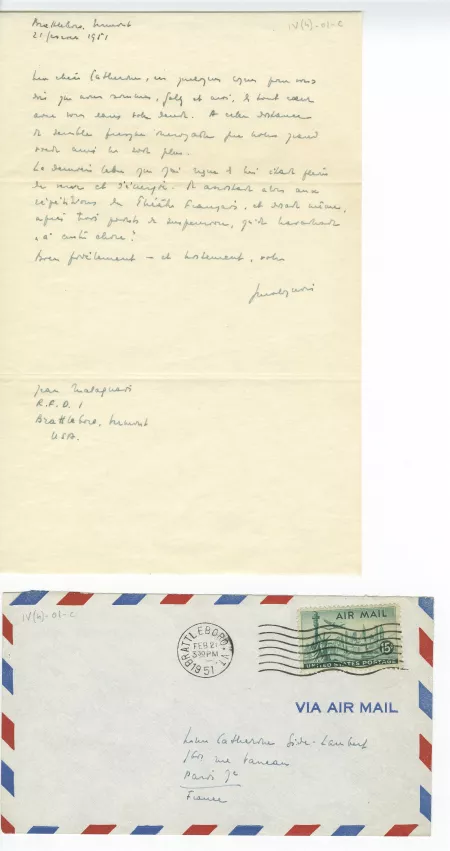 IV(4)-02-c
Brattleboro, Vermont
21 février 1951
Ma chère Catherine, ces quelques lignes pour vous
dire que nous sommes, Galy et moi, de tout cœur
avec vous dans votre deuil. A cette distance
il semble presque incroyable que notre grand
ami ne soit plus.
La dernière lettre que j'ai reçue de lui était pleine
de et d'énergie. Il assistait alors aux
répétitions du Théâtre Français, et disait même,
après trois points de suspension, qu'il
"à autre chose"!
Bien fidèlement — et tristement, votre
Malaquais
Jean Malaquais
R.F.D. 1
Brattleboro, Vermont
USA.
IV(4)-02-c
BRATTLEBORO, VT.
FEB 21
5 30 PM
1951
AIR MAIL
15¢
UNITED STATES POSTAGE
VIA AIR MAIL
Catherine Gide-Lambert
rue Vaneau
Paris 7e
France